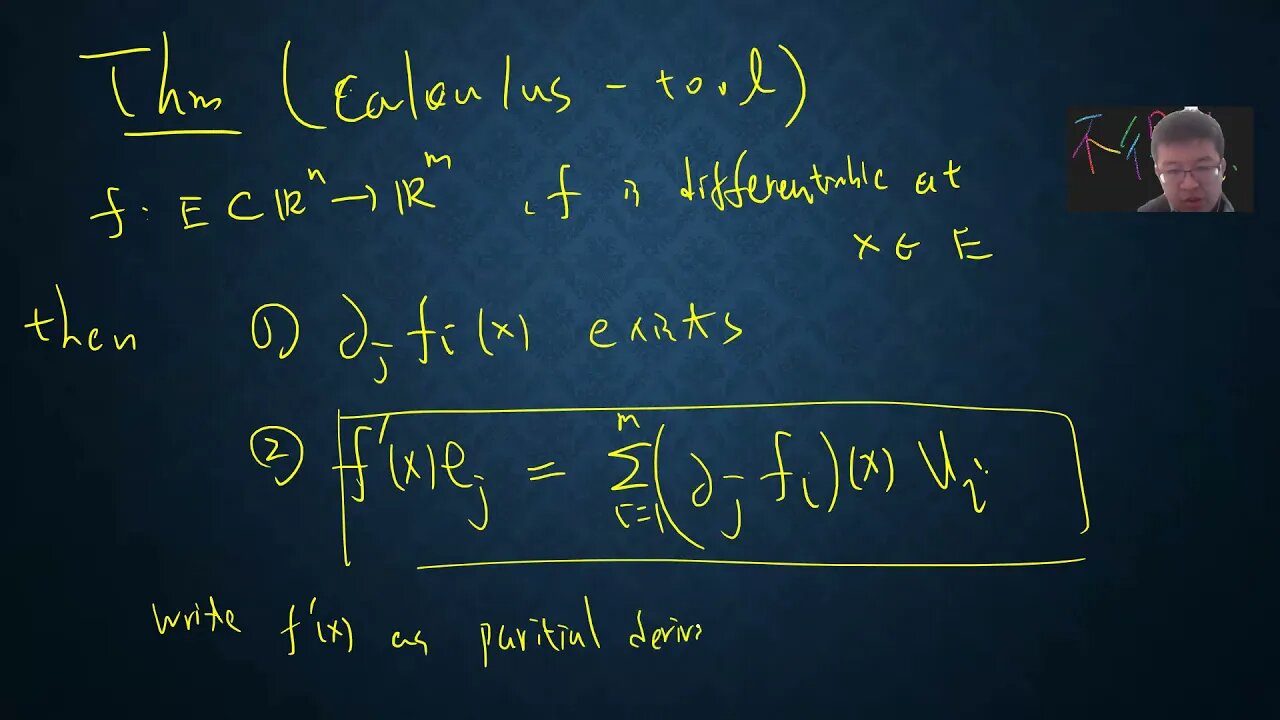 Thm (Calculus - tool)
f : E ⊂ ℝⁿ → ℝᵐ , f is differentiable at
x ∈ E
then ① ∂_j f_i (x) exists
② f'(x) e_j = ∑_{i=1}^{m} (∂_j f_i)(x) u_i
write f'(x) as paritial deriv
不